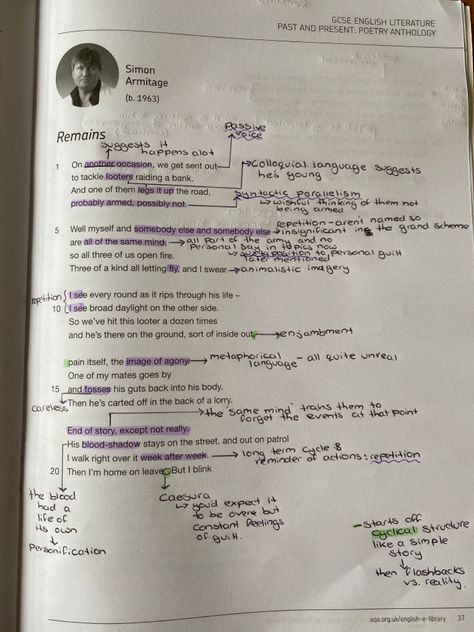 GCSE ENGLISH LITERATURE
PAST AND PRESENT: POETRY ANTHOLOGY
Simon
Armitage
(b. 1963)
Remains
suggests it
happens alot
Passive
voice
1 On another occasion, we get sent out
to tackle looters raiding a bank.
And one of them legs it up the road,
probably armed, possibly not.
colloquial language suggests
he's young
Syntactic parallelism
wishful thinking of them not
being armed
5 Well myself and somebody else and somebody else
are all of the same mind,
so all three of us open fire.
Three of a kind all letting fly, and I swear
repetition - arent named so
insignificant in the grand scheme
all part of the army and no
personal say in topics now
juxtaposition to personal guilt
later mentioned
animalistic imagery
repetition
I see every round as it rips through his life –
10 I see broad daylight on the other side.
So we've hit this looter a dozen times
and he's there on the ground, sort of inside out,
enjambment
pain itself, the image of agony.
One of my mates goes by
15 and tosses his guts back into his body.
Then he's carted off in the back of a lorry.
metaphorical
language - all quite unreal
careless
the 'same mind' trains them to
forget the events at that point
End of story, except not really.
His blood-shadow stays on the street, and out on patrol
I walk right over it week after week.
20 Then I'm home on leave. But I blink
long term cycle &
reminder of actions: repetition
the blood
had a
life of
its own
personification
Caesura
you'd expect it
to be over but
constant feelings
of guilt.
- starts off
cyclical structure
like a simple
story
then flashbacks
vs. reality.
aqa.org.uk/english-e-library 37